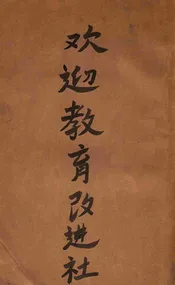 欢迎教育改进社